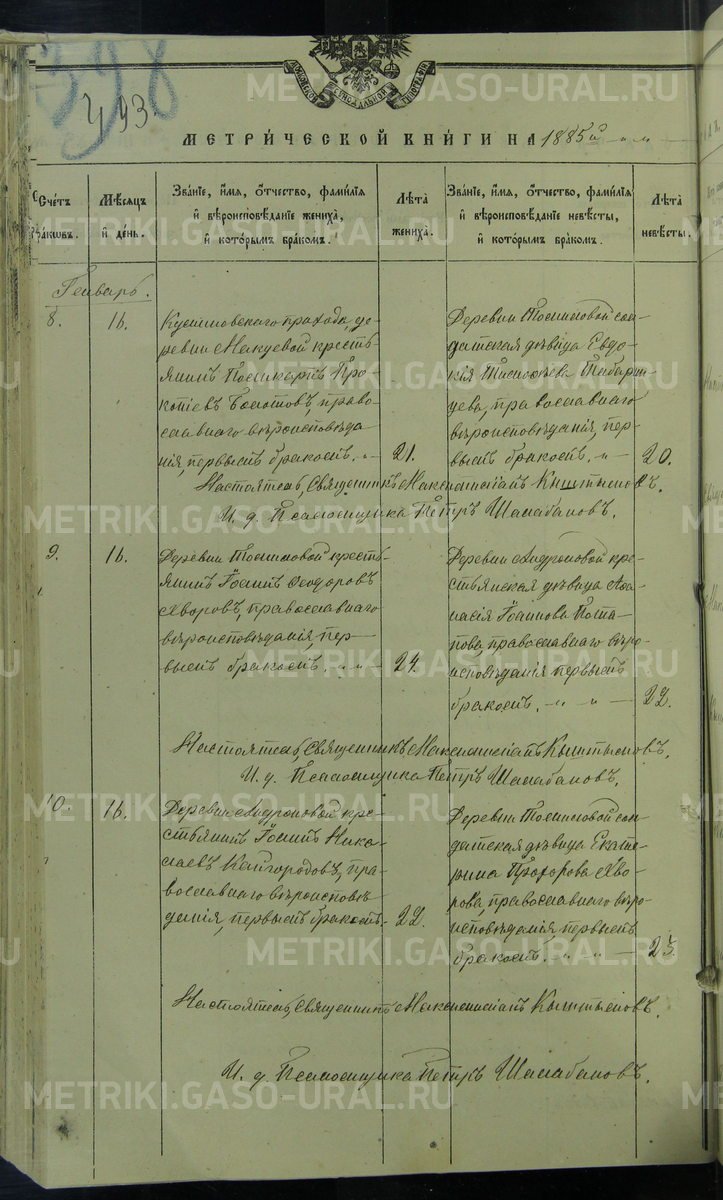 398
493
МЕТРИ́ЧЕСКОЙ КНИ́ГИ НА 1885й
Сче́тъ бракωвъ.
Мѣ́сяцъ и҆ де́нь.
Зва́нїе, и҆́мя, ѻ҆́тчество, фами́лїя и҆ вѣроисповѣ́данїе жениха̀, и҆ кото́рымъ бра́комъ.
Лѣ́та жениха̀.
Зва́нїе, и҆́мя, ѻ҆́тчество, фами́лїя и҆ вѣроисповѣ́данїе невѣ́сты, и҆ кото́рымъ бра́комъ.
Лѣ́та невѣ́сты.
Генварь.
8.
16.
прихода, де-
ревни Макуевой кресть-
янинъ Поликарпъ Про-
копіевъ Болотовъ, право-
славнаго вѣроисповѣда-
нія, первымъ бракомъ.
21.
Деревни сол-
датская дѣвица Евдо-
кія
православнаго
вѣроисповѣданія, пер-
вымъ бракомъ.
20.
Настоятель, Священникъ Максимиліанъ Кыштымовъ.
И. д. Псаломщика Петръ Шалабановъ.
9.
16.
Деревни кресть-
янинъ Іоаннъ Ѳеодоровъ
Хворовъ, православнаго
вѣроисповѣданія, пер-
вымъ бракомъ.
24.
Деревни Андроновой кре-
стьянская дѣвица Аѳа-
насія Іоаннова Пота-
пова, православнаго вѣро-
исповѣданія первымъ
бракомъ.
22.
Настоятель, Священникъ Максимиліанъ Кыштымовъ.
И. д. Псаломщика Петръ Шалабановъ.
10.
16.
Деревни Андроновой кре-
стьянинъ Іоаннъ Нико-
лаевъ Кайгородовъ, пра-
вославнаго вѣроисповѣ-
данія, первымъ бракомъ.
22.
Деревни сол-
датская дѣвица Екате-
рина Прохорова Хво-
рова, православнаго вѣро-
исповѣданія, первымъ
бракомъ.
25.
Настоятель, Священникъ Максимиліанъ Кыштымовъ.
И. д. Псаломщика Петръ Шалабановъ.
METRIKI.GASO-URAL.RU